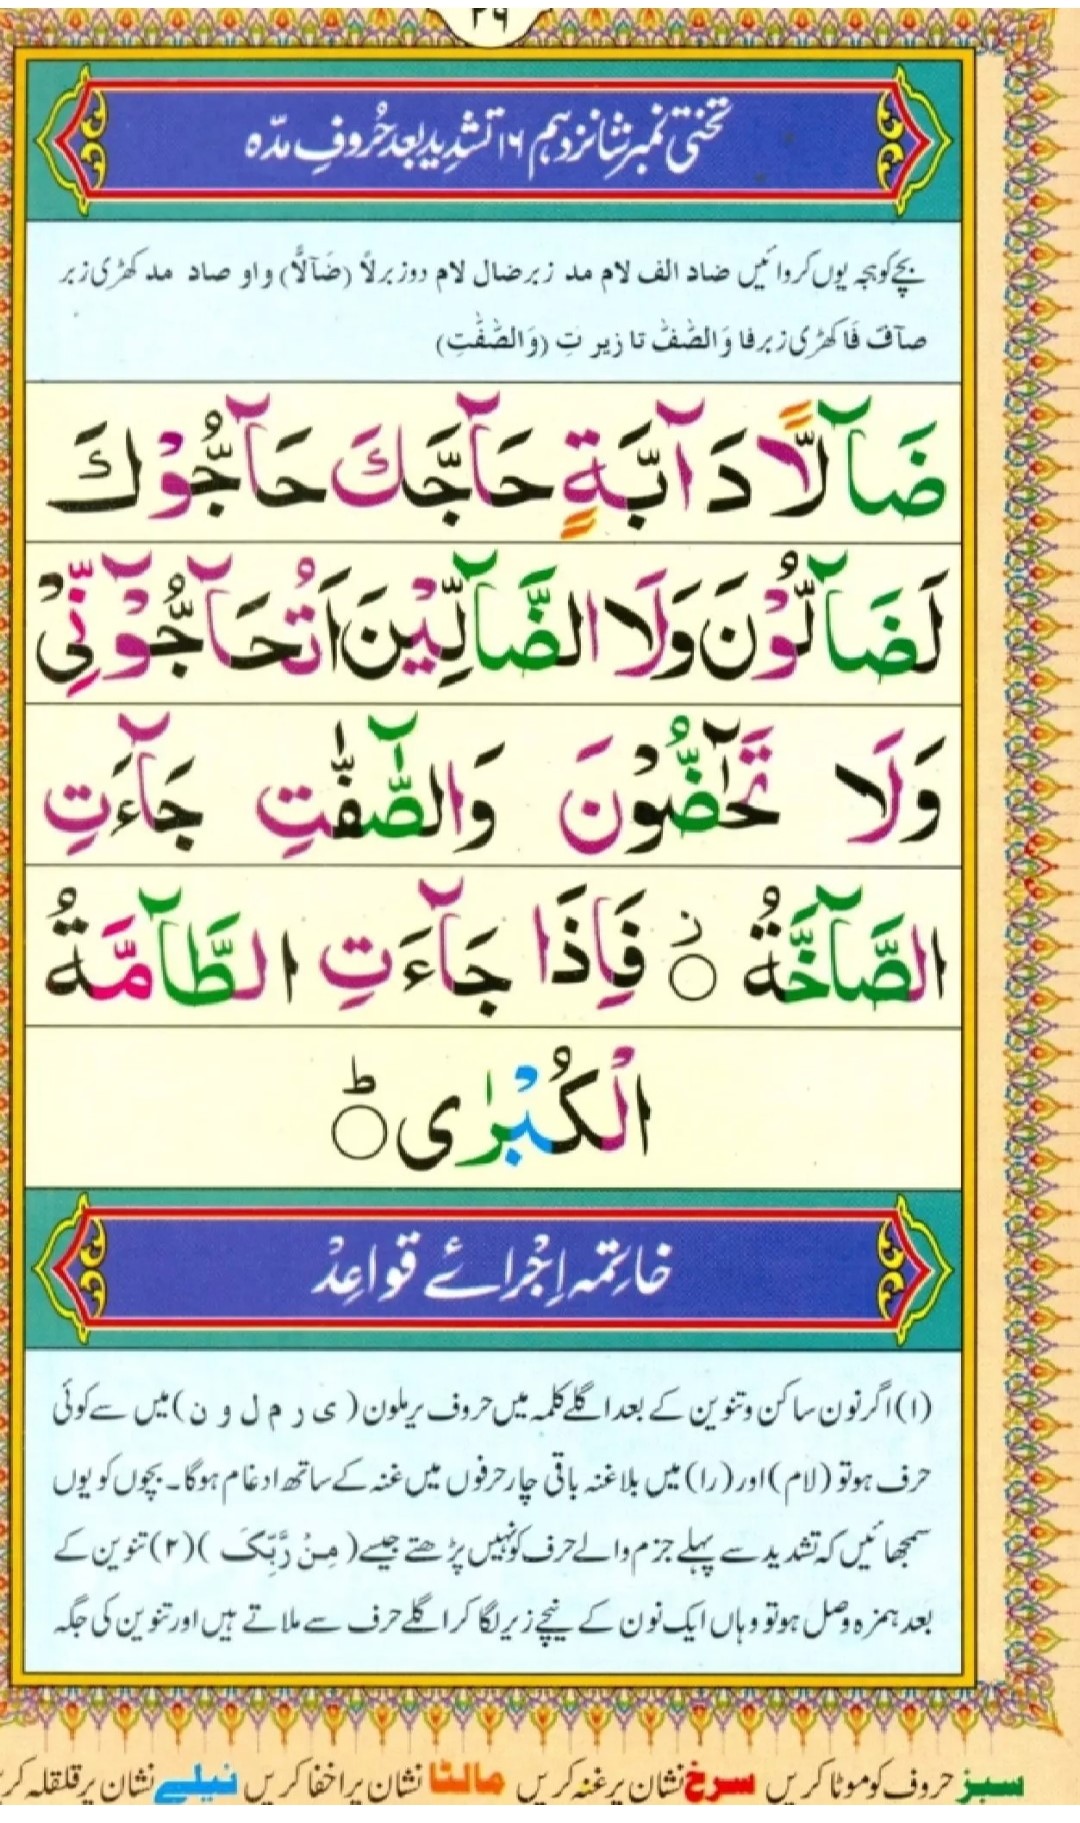 تختی نمبر شانزدہم ۱۶ تشدید بعد حُروفِ مدّہ
بچے کو ہجہ یوں کروائیں ضاد الف لام مد زبر ضال لام دو زبر لاً (ضَآلاًّ) واو صاد مد کھڑی زبر
صآفّ فَا کھڑی زبر فا وَالصّٰفّٰ تا زیر تِ (وَالصّٰٓفّٰتِ)
ضَآلًّا دَآبَّةٍ حَآجَّكَ حَآجُّوْكَ
لَضَآلُّوْنَ وَلَا الضَّآلِّيْنَ اَتُحَآجُّوْٓنِّيْ
وَلَا تَحٰٓضُّوْنَ وَالصّٰٓفّٰتِ جَآءَتِ
الصَّآخَّةُ ۝ ز فَاِذَا جَآءَتِ الطَّآمَّةُ
الْكُبْرٰى ۝ ط
خاتِمہ اِجْرائے قواعِدْ
(۱) اگر نون ساکن و تنوین کے بعد اگلے کلمہ میں حروف یرملون (ی ر م ل و ن) میں سے کوئی
حرف ہو تو (لام) اور (را) میں بلا غنہ باقی چار حرفوں میں غنہ کے ساتھ ادغام ہوگا۔ بچوں کو یوں
سمجھائیں کہ تشدید سے پہلے جزم والے حرف کو نہیں پڑھتے جیسے (مِنْ رَّبِّكَ) (۲) تنوین کے
بعد ہمزہ وصل ہو تو وہاں ایک نون کے نیچے زیر لگا کر اگلے حرف سے ملاتے ہیں اور تنوین کی جگہ
سبز حروف کو موٹا کریں سرخ نشان پر غنہ کریں مالٹا نشان پر اخفا کریں نیلے نشان پر قلقلہ